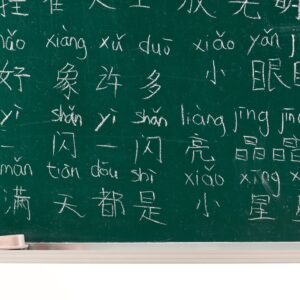 放光
hǎo xiàng xǔ duō xiǎo yǎn
好象许多小眼
yì shǎn yì shǎn liàng jīng jīng
一闪一闪亮晶晶
mǎn tiān dōu shì xiǎo xīng
满天都是小星